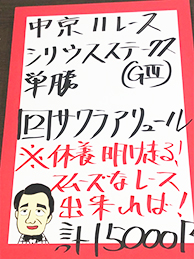 中京11レース
シリウスステークス
(GⅢ)
単勝
12サクラアリュール
※休養明けまる!
スムーズなレース
出来れば!
計15000円